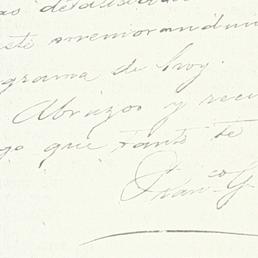 as detalladas
este memorandum
grama de hoy.
Abrazos y recu
go que tanto te
Franco G